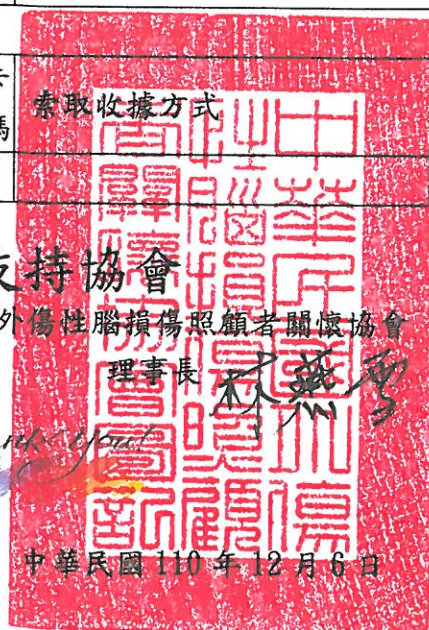 索取收據方式
持協會
外傷性腦損傷照顧者關懷協會
理事長 林燕雪
中華民國外傷
性腦損傷照顧
者關懷協會圖記
中華民國 110 年 12 月 6 日